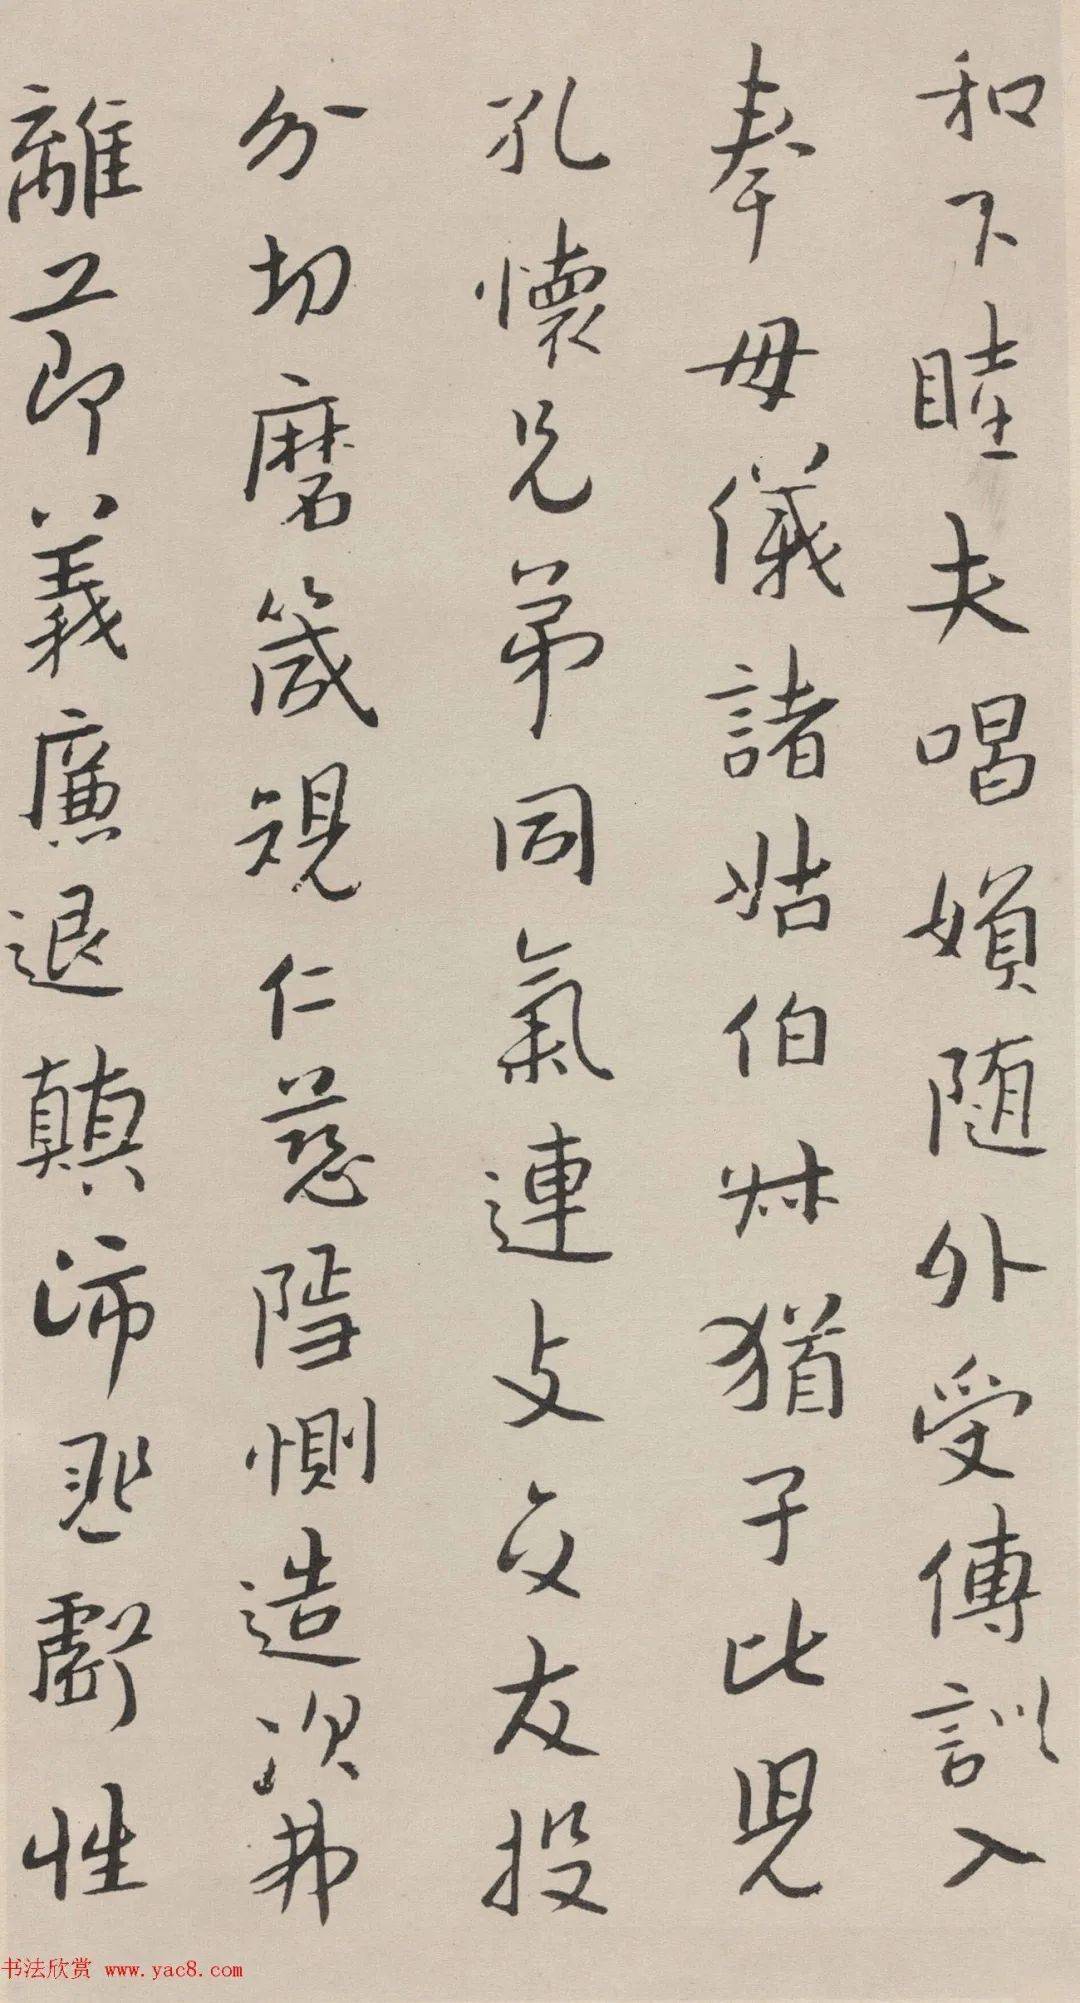 和下睦夫唱婦随外受傅訓入
奉母儀諸姑伯叔猶子比兒
孔懷兄弟同氣連支交友投
分切磨箴規仁慈隱惻造次弗
離節義廉退顛沛匪虧性
书法欣赏 www.yac8.com